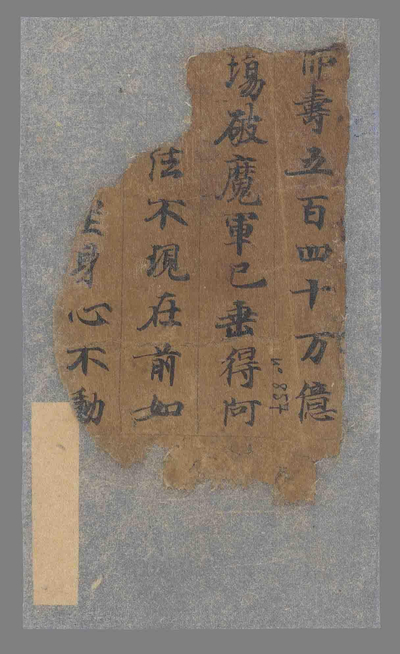 佛壽五百四十万億
場破魔軍已垂得阿
法不現在前如
坐身心不動